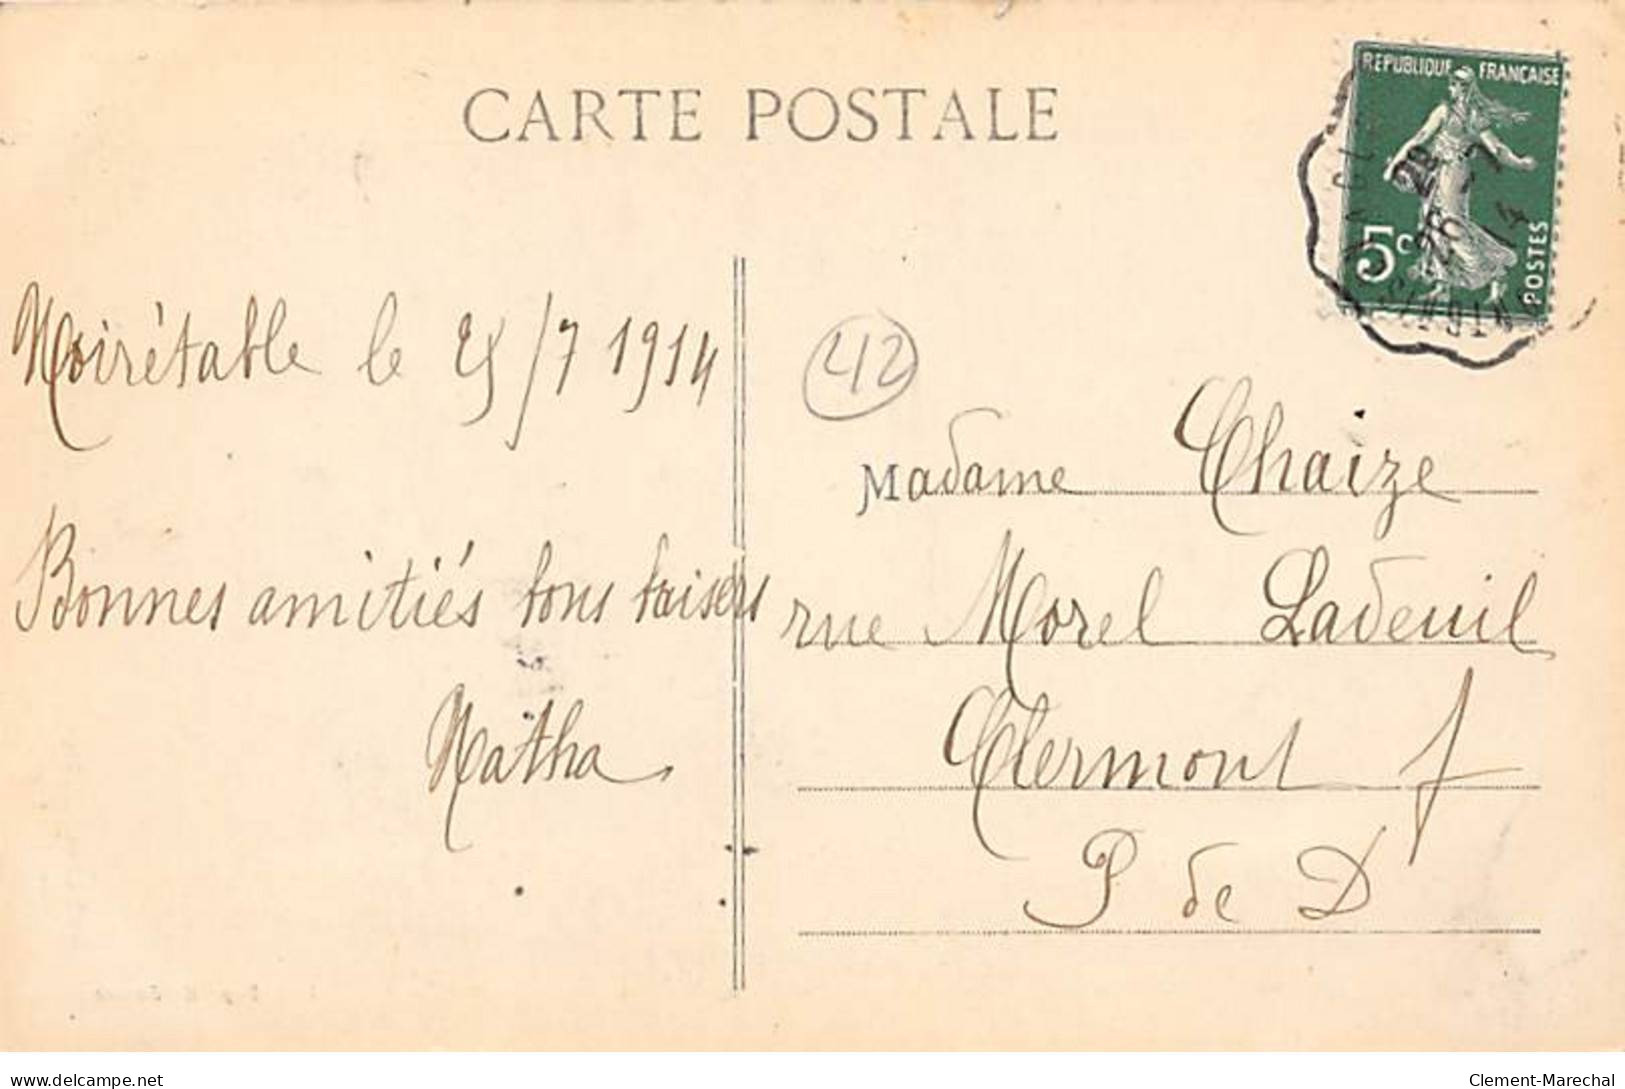 CARTE POSTALE
REPUBLIQUE FRANÇAISE
5c
POSTES
28
26 -7
14
Noirétable le 25/7 1914
42
Madame Chaize
Bonnes amitiés bons baisers
rue Morel Ladeuil
Natha
Clermont f
P de D
www.delcampe.net
Clement-Marechal